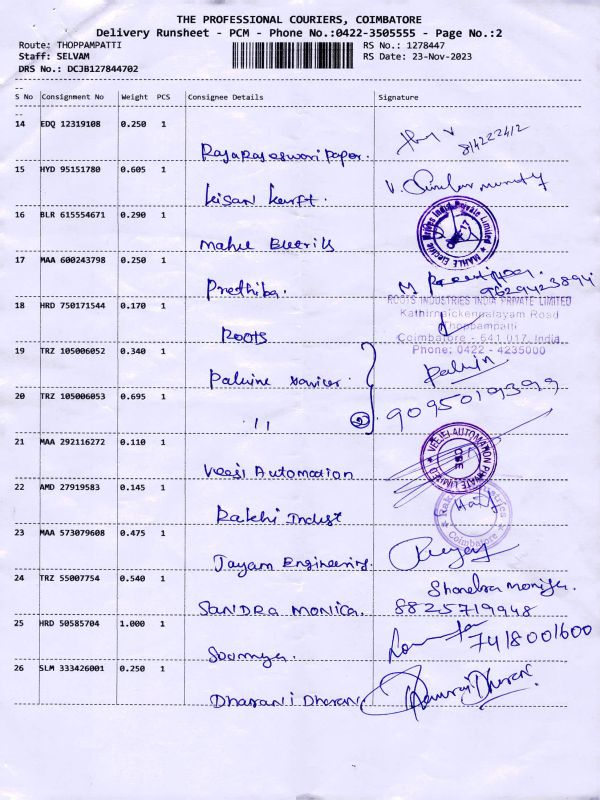 THE PROFESSIONAL COURIERS, COIMBATORE
Delivery Runsheet - PCM - Phone No.:0422-3505555 - Page No.:2
Route: THOPPAMPATTI RS No.: 1278447
Staff: SELVAM RS Date: 23-Nov-2023
DRS No.: DCJB127844702
S No Consignment No Weight PCS Consignee Details Signature
14 EDQ 12319108 0.250 1
Rajarajeswari Paper.
15 HYD 95151780 0.605 1
16 BLR 615554671 0.290 1
Mahle Electric Drives India Private Limited
17 MAA 600243798 0.250 1
Prethiba. 9629423894
18 HRD 750171544 0.170 1
ROOTS INDUSTRIES INDIA PRIVATE LIMITED
Kathirnaickenpalayam Road
Thoppampatti
Roots Coimbatore - 641 017. India
19 TRZ 105006052 0.340 1 Phone: 0422 - 4235000
20 TRZ 105006053 0.695 1
11 2 9095019399
21 MAA 292116272 0.110 1
VEEJEI AUTOMATION PRIVATE LIMITED CBE
Veeji Automation
22 AMD 27919583 0.145 1
Rakhi Indust
Coimbatore
23 MAA 573079608 0.475 1
Jayam Engineering.
24 TRZ 55007754 0.540 1
SANDRA MONICA. 8825719948
25 HRD 50585704 1.000 1
Soumya. 7418001600
26 SLM 333426001 0.250 1
Dharani Dharan